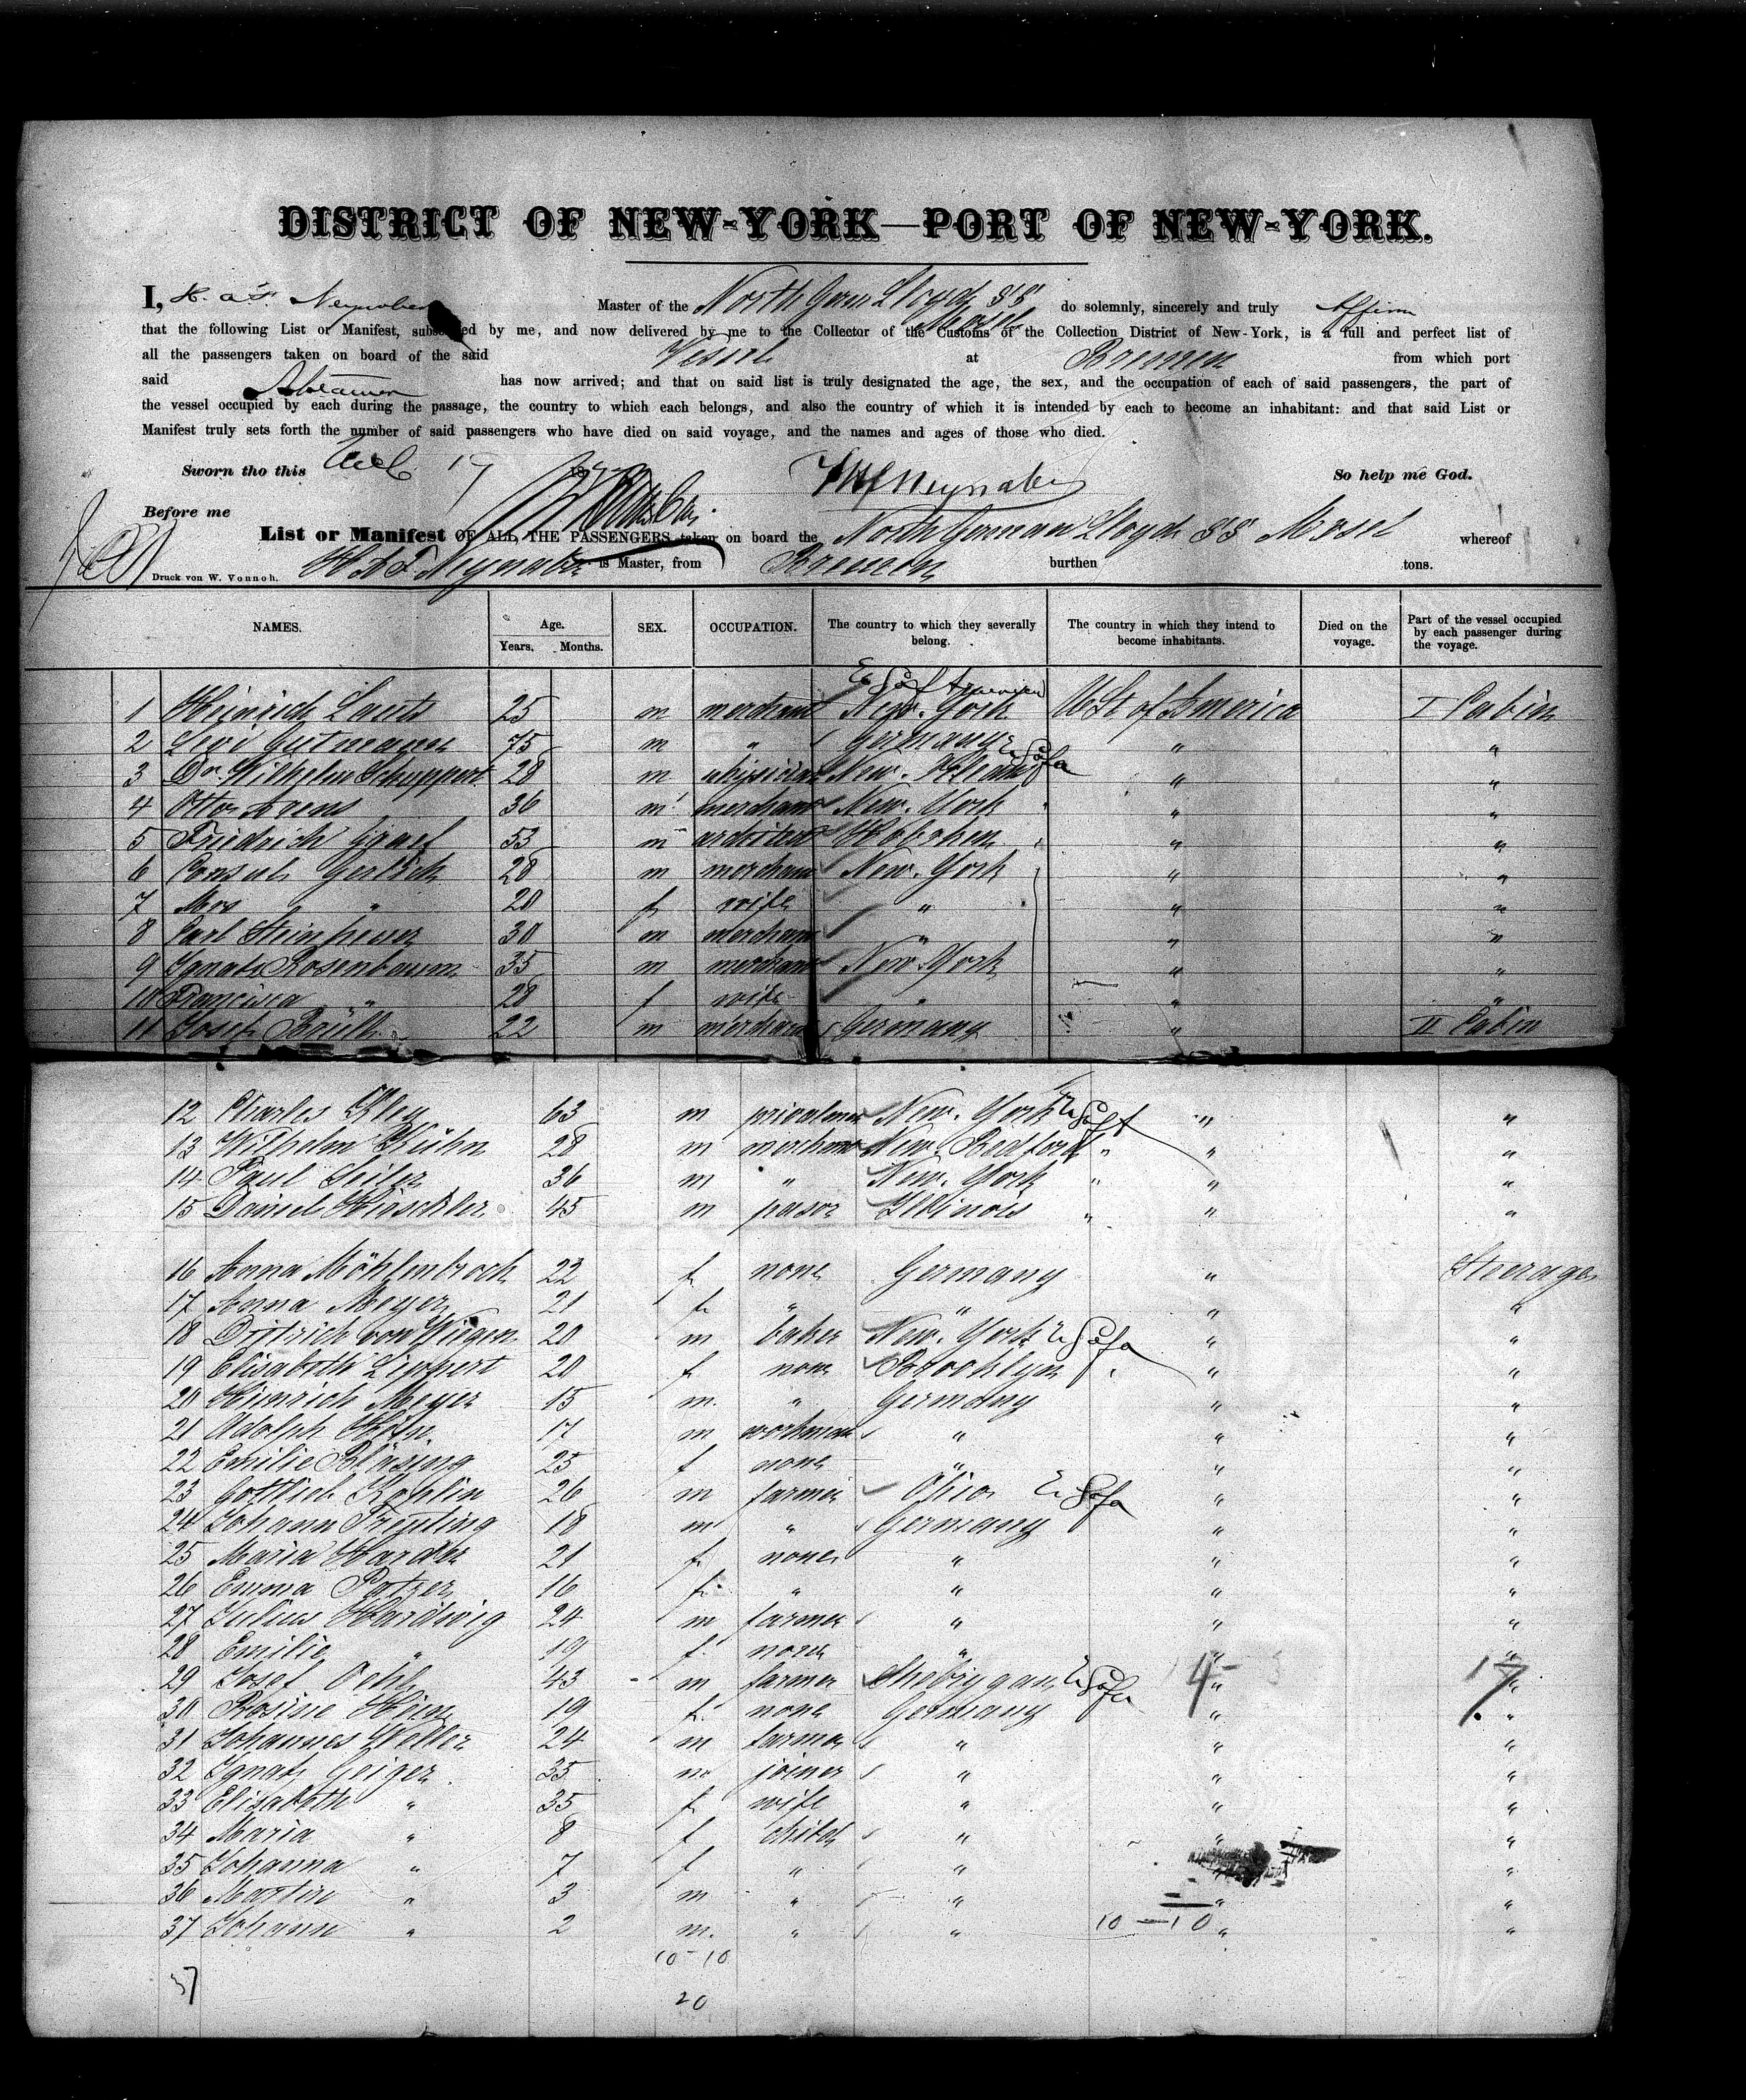 DISTRICT OF NEW-YORK—PORT OF NEW-YORK.
I, H. A. F. Neynaber Master of the North Germ Lloyd SS Mosel do solemnly, sincerely and truly affirm
that the following List or Manifest, subscribed by me, and now delivered by me to the Collector of the Customs of the Collection District of New-York, is a full and perfect list of
all the passengers taken on board of the said Vessel at Bremen from which port
said Steamer has now arrived; and that on said list is truly designated the age, the sex, and the occupation of each of said passengers, the part of
the vessel occupied by each during the passage, the country to which each belongs, and also the country of which it is intended by each to become an inhabitant: and that said List or
Manifest truly sets forth the number of said passengers who have died on said voyage, and the names and ages of those who died.
Sworn tho this 19 So help me God.
Before me
List or Manifest OF ALL THE PASSENGERS taken on board the North German Lloyd SS Mosel whereof
Druck von W. Vonnoh. H A F Neynaber is Master, from Bremen burthen tons.
NAMES. Age. Years. Months. SEX. OCCUPATION. The country to which they severally belong. The country in which they intend to become inhabitants. Died on the voyage. Part of the vessel occupied by each passenger during the voyage.
1 Heinrich 25 m merchant New-York U St of America I Cabin
2 Levi Gutmann 75 m " Germany " "
3 Dr. Wilhelm Schuppert 28 m physician New-Orleans " "
4 Otto 36 m merchant New-York " "
5 Friedrich Graef 53 m architect Hoboken " "
6 Consul Gerlich 28 m merchant New-York " "
7 Mrs " 20 f wife " " "
8 Carl 30 m merchant " " "
9 Ignatz Rosenbaum 35 m merchant New-York " "
10 Francisca " 28 f wife " " "
11 Josef Brüll 22 m merchant Germany " II Cabin
12 Charles Kley 63 m New-York " "
13 Wilhelm Kühn 28 m merchant New-Bedford " " "
14 Paul Seiler 36 m " New-York " " "
15 Daniel 45 m pasor Illinois " " "
16 Anna Möhlenbrock 22 f none Germany " Steerage
17 Anna Meyer 21 f " " " "
18 Dietrich von Wiegen 20 m baker New-York " "
19 Elisabeth Lippert 20 f none Brooklyn " "
20 Hinrich Meyer 15 m. " Germany " "
21 Adolph 17 m workman " " "
22 Emilie Bläsing 25 f none " " "
23 Gottlieb 26 m farmer Ohio " "
24 Johann Freyling 18 m " Germany " "
25 Maria Harder 21 f none " " "
26 Emma Patzer 16 f. " " " "
27 Julius Hardwig 24 m farmer " " "
28 Emilie " 19 f none " " "
29 Josef Oehl 43 m farmer " "
30 Rosine 19 f. none Germany " "
31 Johannes Weller 24 m farmer " " "
32 Ignatz Geiger 35 m joiner " " "
33 Elisabeth " 35 f wife " " "
34 Maria " 8 f child " " "
35 Johanna " 7 f " " " "
36 Martin " 3 m " " " "
37 Johann " 2 m. " " 10-10 " "
10-10
37
20